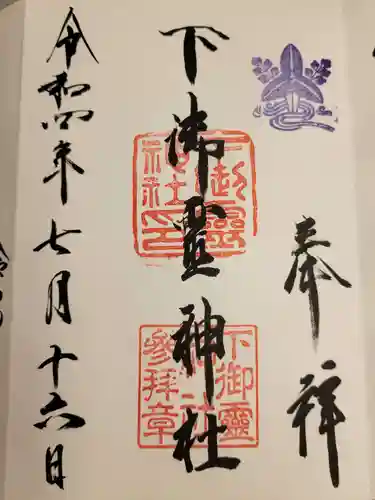 奉祥
下御霊神社
下御霊神社印
下御霊神社参拝章
令和四年七月十六日